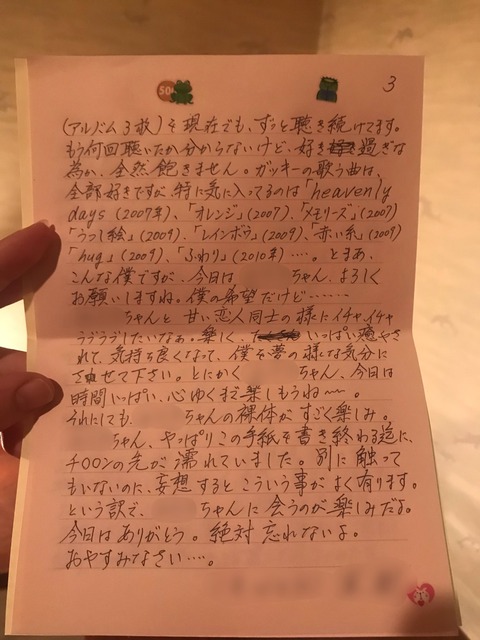 50
3
(アルバム3枚)を現在でも、ずっと聴き続けてます。
もう何回聴いたか分からないけど、好き過ぎな
為か、全然飽きません。ガッキーの歌う曲は、
全部好きですが、特に気に入ってるのは「heavenly
days(2007年)、「オレンジ」(2007)、「メモリーズ」(2007)
「うつし絵」(2009)、「レインボウ」(2009)、「赤い糸」(2009)
「hug」(2009)、「ふわり」(2010年)‥‥。とまあ、
こんな僕ですが、今日は ちゃん、よろしく
お願いしますね。僕の希望だけど‥‥‥‥
ちゃんと甘い恋人同士の様にイチャイチャ
ラブラブしたいなぁ。楽しく いっぱい癒やさ
れて、気持ち良くなって、僕を夢の様な気分に
させて下さい。とにかく ちゃん、今日は
時間いっぱい、心ゆくまで楽しもうね〜。
それにしても、 ちゃんの裸体がすごく楽しみ。
ちゃん、やっぱりこの手紙を書き終わる迄に、
チ〇〇ンの先が濡れていました。別に触って
もいないのに、妄想するとこういう事がよく有ります。
という訳で、 ちゃんに会うのが楽しみだよ。
今日はありがとう。絶対忘れないよ。
おやすみなさい‥‥。